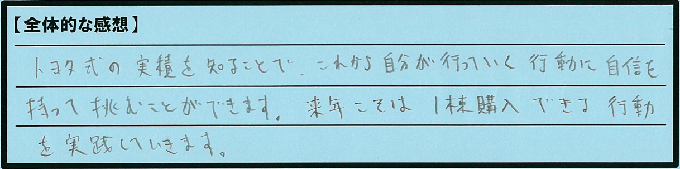 【全体的な感想】
トヨタ式の実積を知ることで、これから自分が行っていく行動に自信を
持って挑むことができます。来年こそは1棟購入できる行動
を実践していきます。